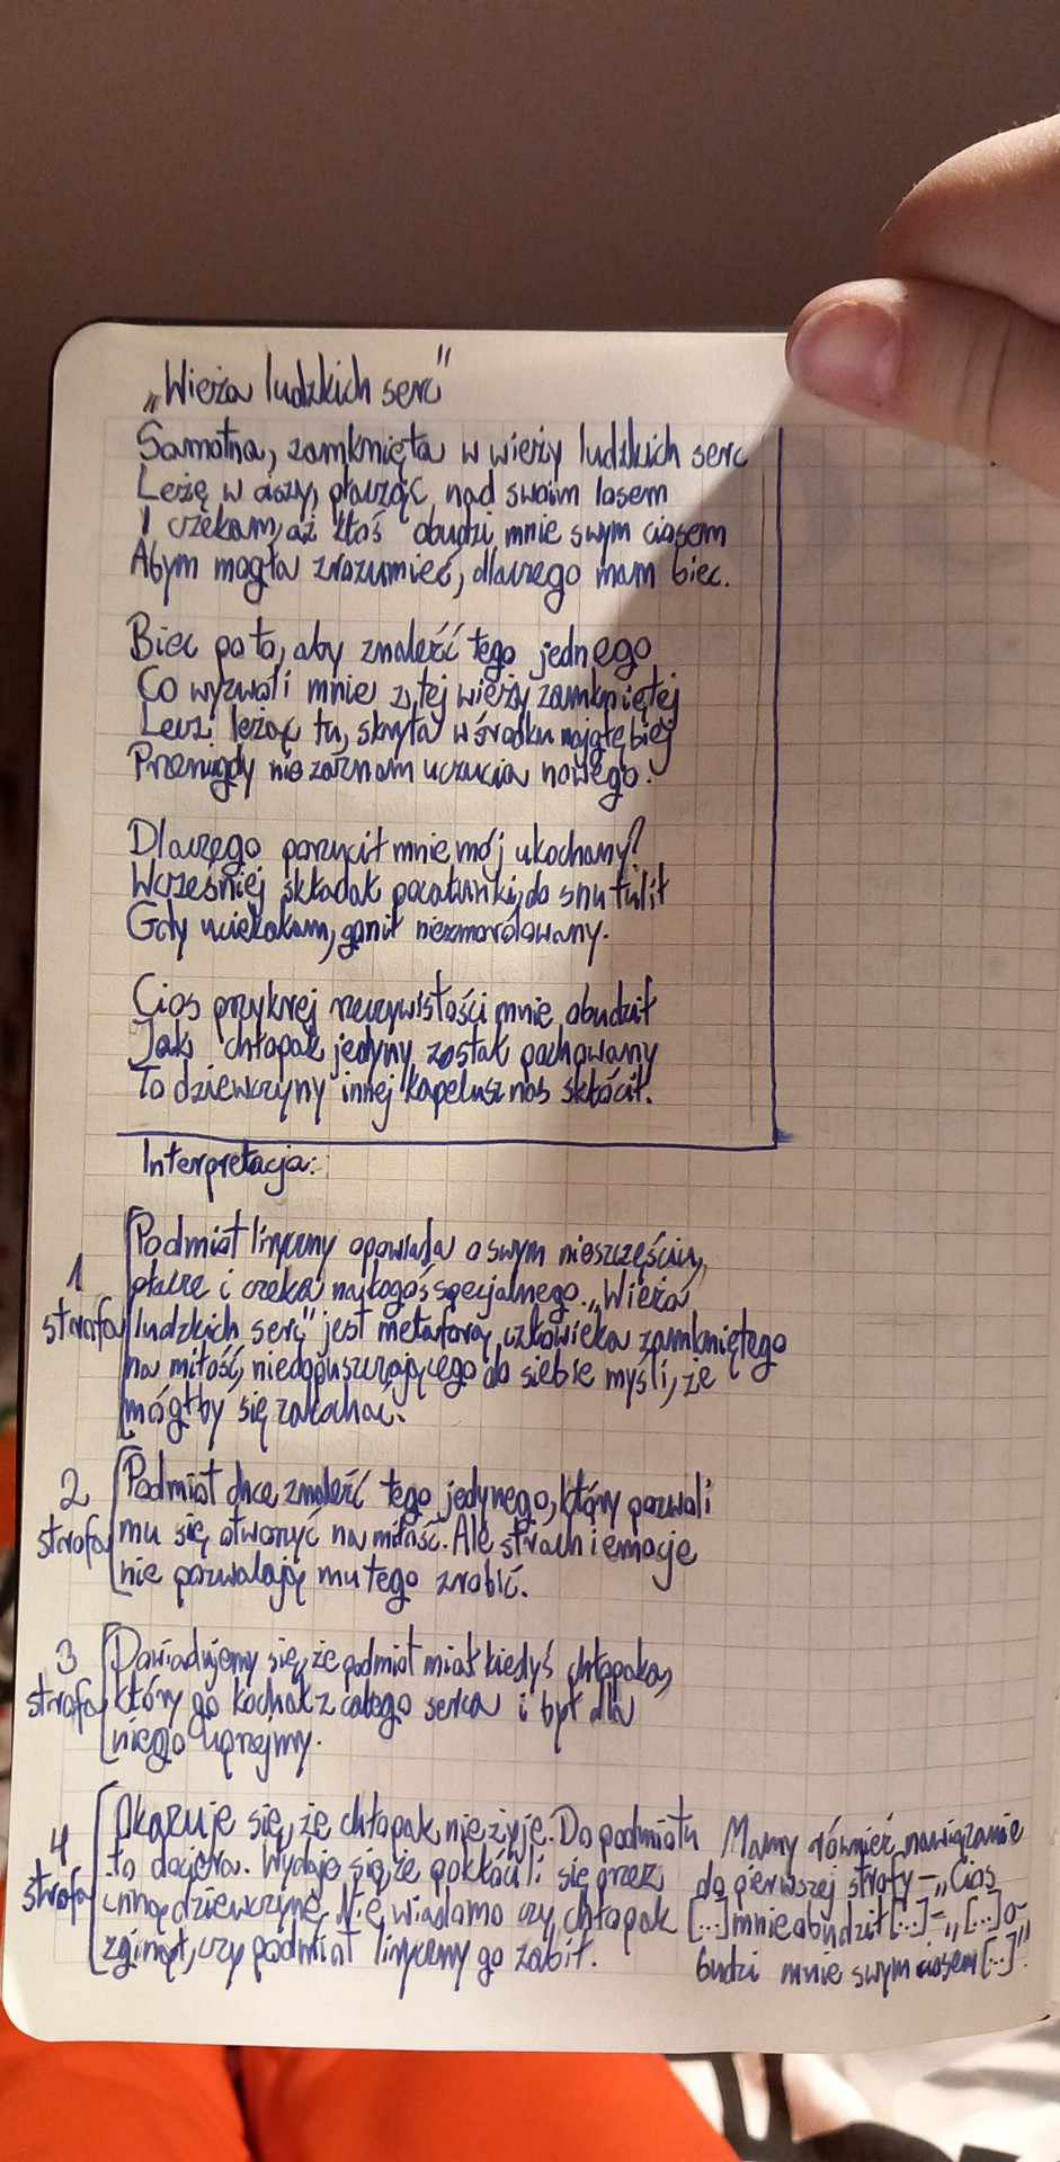 „Wieża ludzkich serc"
Samotna, zamknięta w wieży ludzkich serc
Leżę w ciszy, płacząc nad swoim losem
I czekam, aż ktoś obudzi mnie swym ciosem
Abym mogła zrozumieć, dlaczego mam biec.
Biec po to, aby znaleźć tego jednego
Co wyzwoli mnie z tej wieży zamkniętej
Lecz leżąc tu, skryta w środku najgłębiej
Przenigdy nie zaznam uczucia nowego.
Dlaczego porzucił mnie mój ukochany?
Wcześniej składał pocałunki, do snu tulił
Gdy uciekałam, gonił niezmordowany.
Cios przykrej rzeczywistości mnie obudził
Jak chłopak jedyny został pochowany
To dziewczyny innej kapelusz nas skłócił.
Interpretacja:
1 strofa
Podmiot liryczny opowiada o swym nieszczęściu,
płacze i czeka na kogoś specjalnego. „Wieża
ludzkich serc" jest metaforą człowieka zamkniętego
na miłość, niedopuszczającego do siebie myśli, że
mógłby się zakochać.
2 strofa
Podmiot chce znaleźć tego jedynego, który pozwoli
mu się otworzyć na miłość. Ale strach i emocje
nie pozwalają mu tego zrobić.
3 strofa
Dowiadujemy się, że podmiot miał kiedyś chłopaka,
który go kochał z całego serca i był dla
niego uprzejmy.
4 strofa
Okazuje się, że chłopak nie żyje. Do podmiotu
to dociera. Wydaje się, że pokłócili się przez
inną dziewczynę. Nie wiadomo czy chłopak
zginął, czy podmiot liryczny go zabił.
Mamy również nawiązanie
do pierwszej strofy – „Cios
[...] mnie obudził [...] – „[...] o-
budzi mnie swym ciosem [...]".